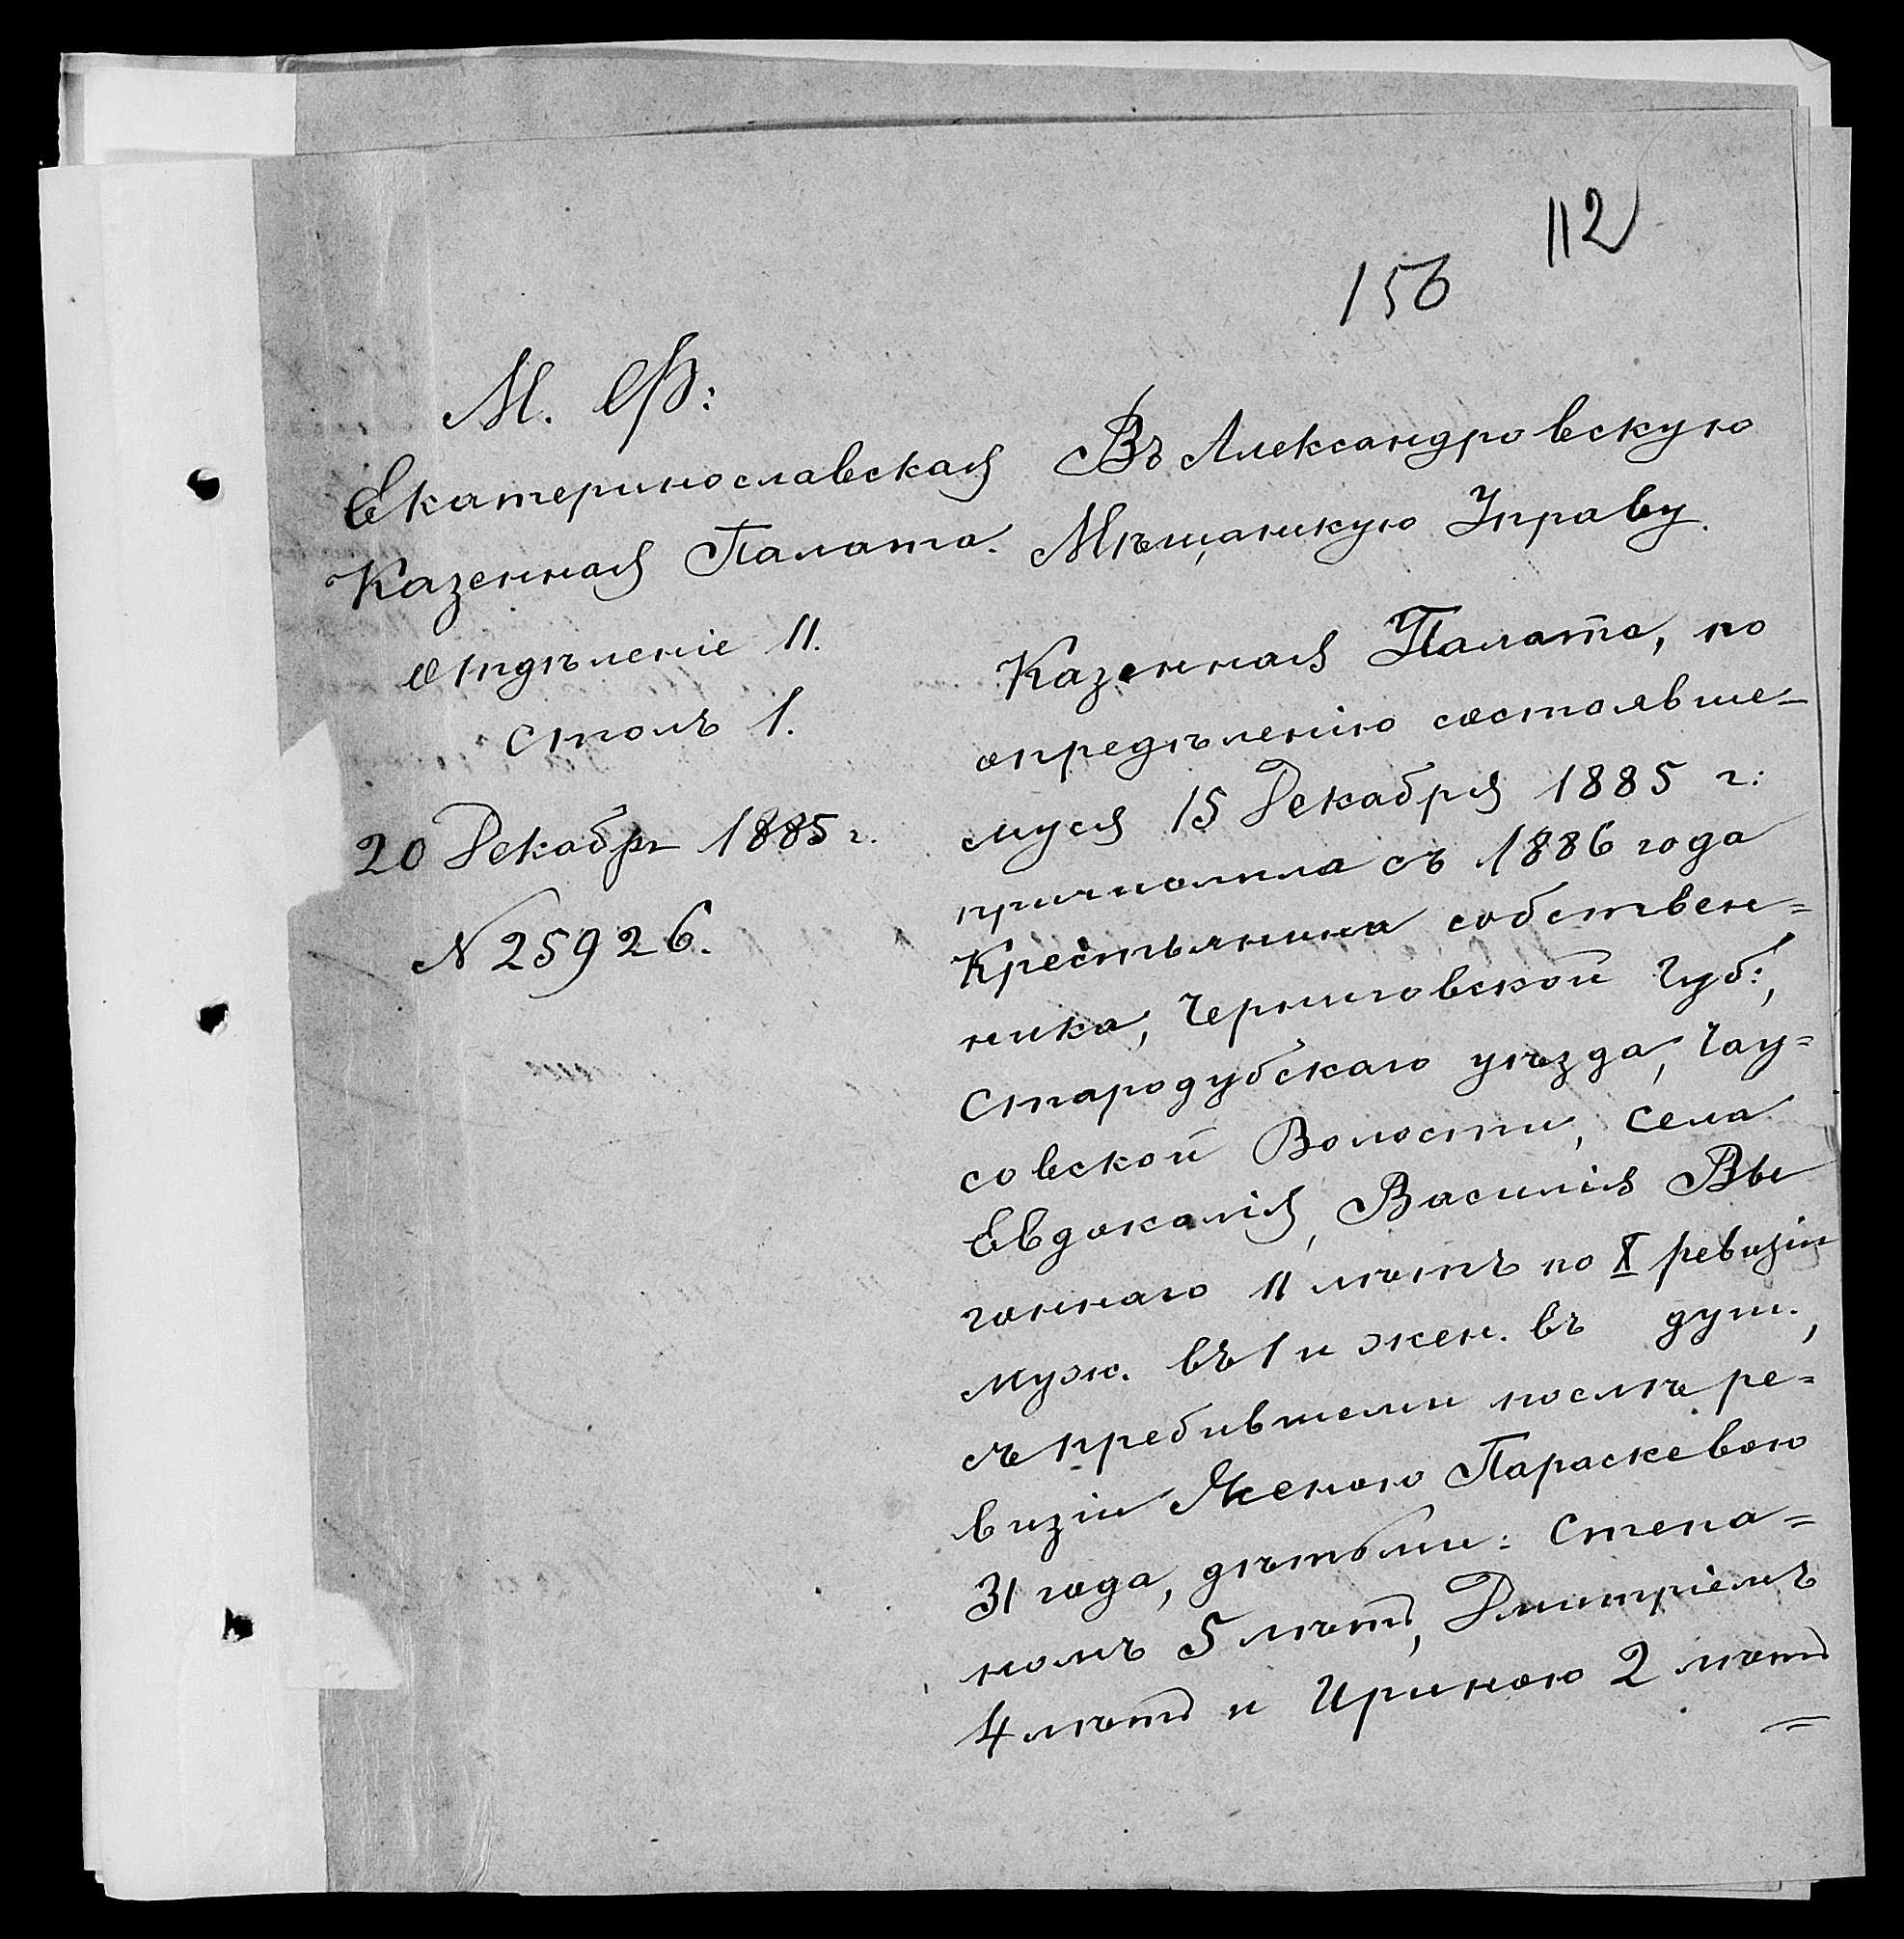 112
156
М. Ф:
Екатеринославская
Казенная Палата.
Отдѣленіе II.
Столъ 1.
20 Декабря 1885 г.
№ 25926.
Въ Александровскую
Мѣщанскую Управу.
Казенная Палата, по
опредѣленію состоявше-
муся 15 Декабря 1885 г:
причислила съ 1886 года
Крестьянина собствен=
ника, Черниговской Губ:,
Стародубскаго уѣзда, Чау=
совской Волости, села
Евдоколія, Василія Вы
гоннаго 11 лѣтъ по X ревизіи
муж. въ 1 и жен. въ душ.,
съ прибывшими послѣ ре=
визіи Женою Параскевою
31 года, дѣтьми: Степа=
номъ 5 лѣтъ, Дмитріемъ
4 лѣтъ и Ириною 2 лѣтъ
=